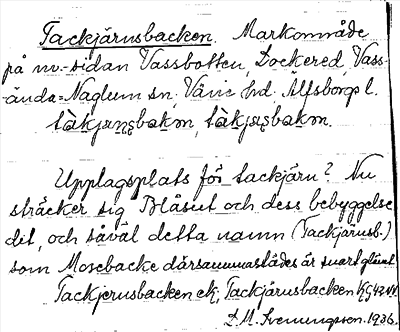 Tackjärnsbacken. Markområde
på nv.-sidan Vassbotten, Dockered, Vass-
ända-Naglum sn, Väne hd. Älfsborgs l.
Upplagsplats för tackjärn? Nu
sträcker sig Blåsut och dess bebyggelse
dit, och såväl detta namn (Tackjärnsb.)
som Mosebacke därsammastädes är snart glömt
Tackjernsbacken ek; Tackjärnsbacken
1936.